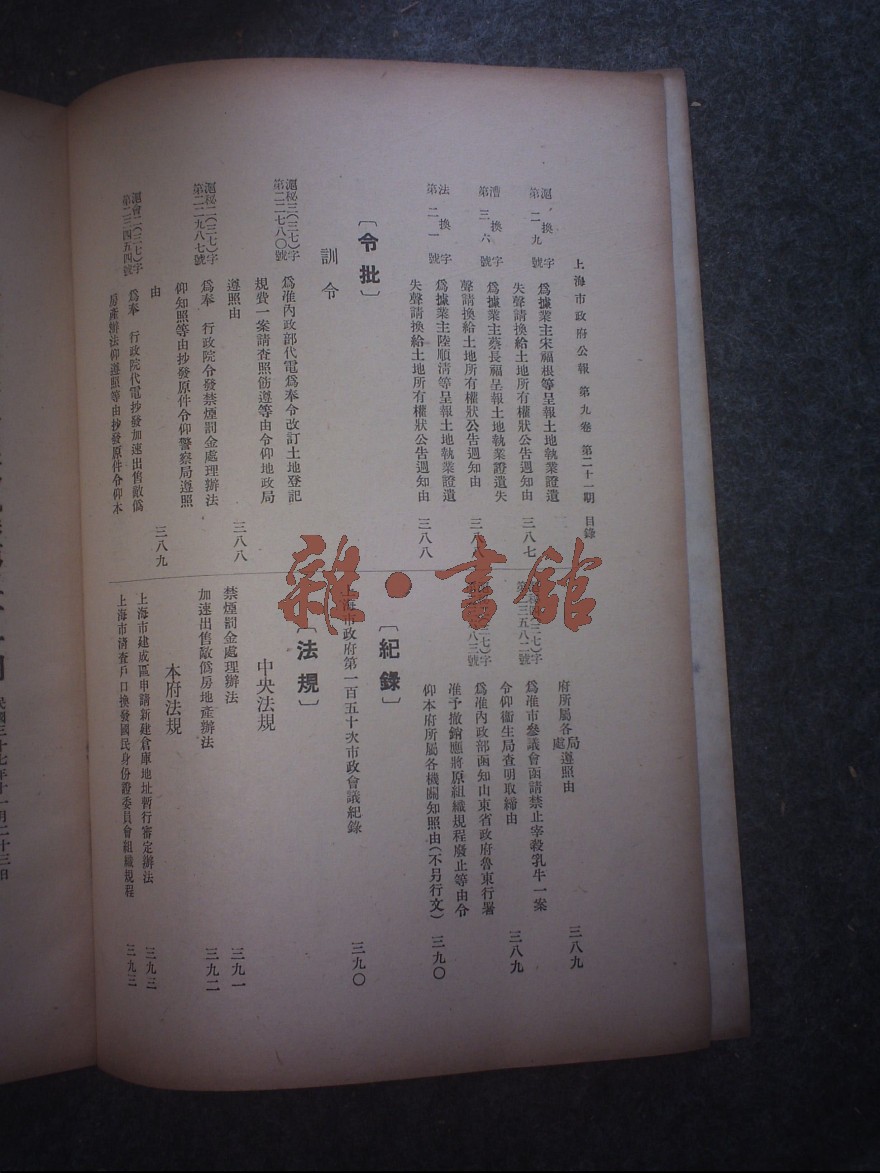 上海市政府公報 第九卷 第二十一期 目錄
滬換字
第二九號
為據業主宋福根等呈報土地執業證遺
失聲請換給土地所有權狀公告週知由 三八七
漕換字
第三六號
為據業主蔡長福呈報土地執業證遺失
聲請換給土地所有權狀公告週知由 三八八
法換字
第二一號
為據業主陸順清等呈報土地執業證遺
失聲請換給土地所有權狀公告週知由 三八八
〔令批〕
訓令
滬秘三(三七)字
第二二七八〇號
為准內政部代電為奉令改訂土地登記
規費一案請查照飭遵等由令仰地政局
遵照由 三八八
滬秘二(三七)字
第二二九八七號
為奉 行政院令發禁煙罰金處理辦法
仰知照等由抄發原件令仰警察局遵照
由 三八九
滬會二(三七)字
第二三四五四號
為奉 行政院代電抄發加速出售敵偽
房產辦法仰遵照等由抄發原件令仰本
府所屬各局處遵照由 三八九
(三七)字
三五八二號
為准市參議會函請禁止宰殺乳牛一案
令仰衞生局查明取締由 三八九
(三七)字
八三號
為准內政部函知山東省政府魯東行署
准予撤銷應將原組織規程廢止等由令
仰本府所屬各機關知照由(不另行文) 三九〇
〔紀錄〕
上海市政府第一百五十次市政會議紀錄 三九〇
〔法規〕
中央法規
禁煙罰金處理辦法 三九一
加速出售敵偽房地產辦法 三九二
本府法規
上海市建成區申請新建倉庫地址暫行審定辦法 三九三
上海市清查戶口換發國民身份證委員會組織規程 三九三
民國三十七年十一月二十三日
雜·書館